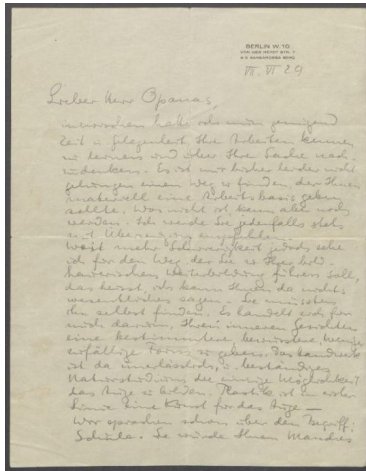 BERLIN W. 10
VON DER HEYDT STR. 7
VI. 29
Lieber Herr Opanas,
inzwischen hatte ich nun genügend
Zeit u. Gelegenheit Ihre Arbeiten kennen
zu lernen und über Ihre Sache nach-
zudenken. Es ist mir bisher leider nicht
gelungen einen Weg zu finden, der Ihnen
materiell eine Arbeitsbasis geben
sollte. Was nicht ist, kann aber noch
werden. Ich werde Sie jedenfalls stets
mit Überzeugung empfehlen.
Weit mehr Schwierigkeit jedoch sehe
ich für den Weg der Sie zu Ihrer
Weiterbildung führen soll,
das heisst, ich kann Ihnen da nichts
wesentliches sagen. Sie müssten
ihn selbst finden. Es handelt sich für
mich darum, Ihren inneren Gesichten
eine bestimmtere, weniger
zufällige Form zu geben. Das Handwerk
ist da unerlässlich, u. beständiges
Naturstudium die einzige Möglichkeit
das Auge zu bilden. Plastik ist in erster
Linie eine Kunst für das Auge —
Wir sprachen schon über den Begriff:
Schule. Sie würde Ihnen Manches